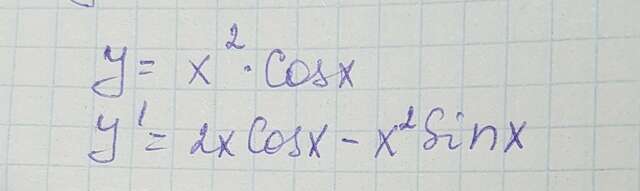 y = x² · cosx
y' = 2x cosx - x² sinx